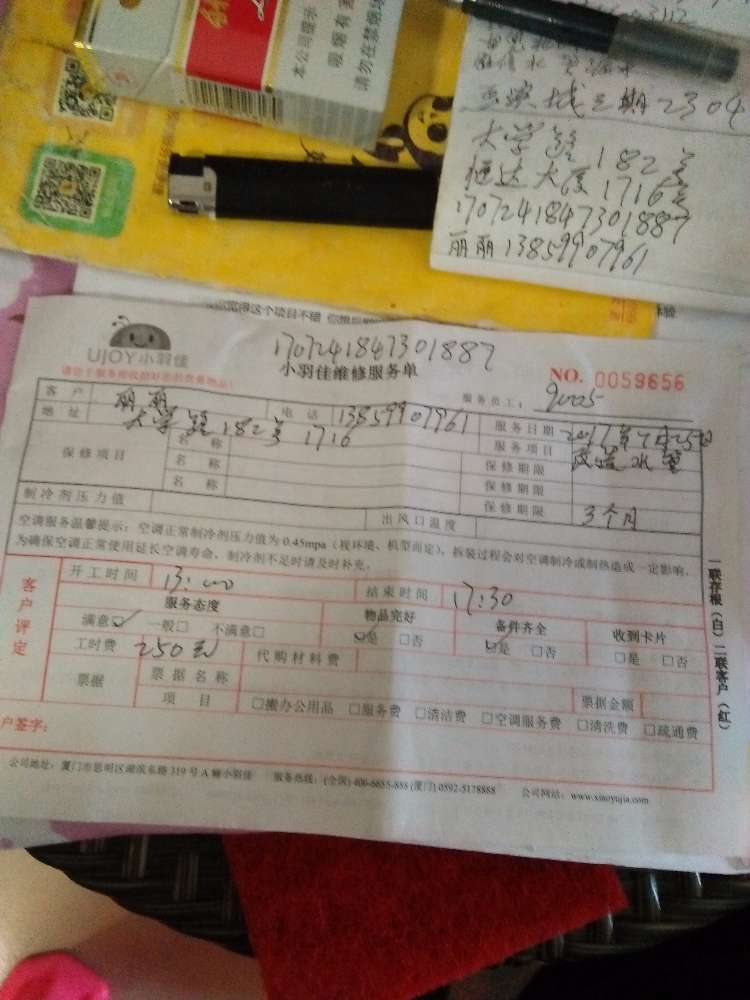 本公司提示
吸烟有害健康
请勿在禁烟场所
三期2304
大学路182号
恒达大厦1716号
1707241847301887
丽丽13859907961
UJOY小羽佳
1707241847301887
小羽佳维修服务单
NO. 0059656
服务员工: 9005
客户 丽丽 电话 13859907961 服务日期 2017年7月25日
地址 大学路182号1716 服务项目
保修项目 名称 保修期限
名称 保修期限
名称 保修期限 3个月
制冷剂压力值 出风口温度
空调服务温馨提示:空调正常制冷剂压力值为0.45mpa(视环境、机型而定),拆装过程会对空调制冷或制热造成一定影响,
为确保空调正常使用延长空调寿命,制冷剂不足时请及时补充。
客户评定
开工时间 13:00 结束时间 17:30
服务态度 物品完好 备件齐全 收到卡片
满意☑ 一般□ 不满意□ ☑是 □否 ☑是 □否 □是 □否
工时费 250元 代购材料费
票据 票据名称 票据金额
项目 □搬办公用品 □服务费 □清洁费 □空调服务费 □清洗费 □疏通费
户签字:
一联存根(白)二联客户(红)
公司地址:厦门市思明区湖滨东路319号A幢小羽佳 服务热线:(全国)400-6655-888 (厦门)0592-5178888 公司网站:www.xiaoyujia.com